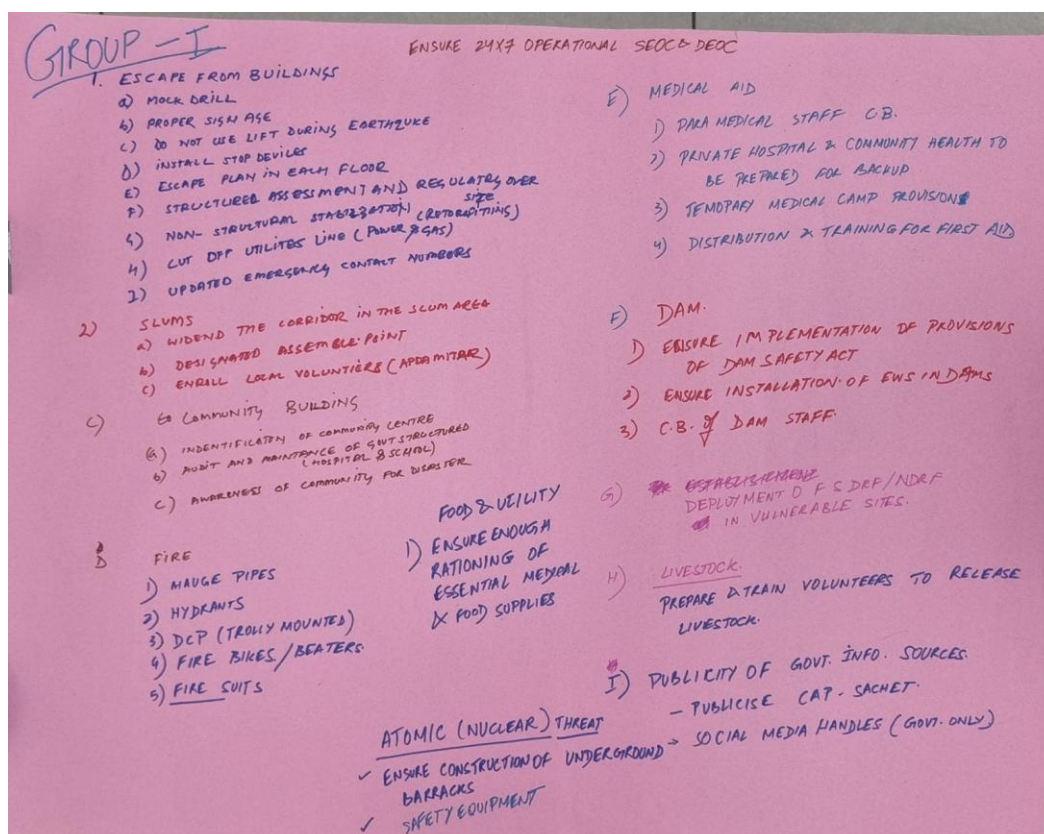 GROUP - I
ENSURE 24X7 OPERATIONAL SEOC & DEOC
1. ESCAPE FROM BUILDINGS
a) MOCK DRILL
b) PROPER SIGN AGE
c) DO NOT USE LIFT DURING EARTHZUKE
D) INSTALL STOP DEVILES
E) ESCAPE PLAN IN EACH FLOOR
F) STRUCTURED ASSESSMENT AND REGULATRY OVER
SITE
G) NON-STRUCTURAL STABIZZATION (RETOROFITTING)
H) CUT OFF UTILITES LINE (POWER & GAS)
I) UPDATED EMERGENCY CONTACT NUMBERS
2) SLUMS
a) WIDEND THE CORRIDOR IN THE SLUM AREA
b) DESIGNATED ASSEMBLE POINT
c) ENROLL LOCAL VOLUNTIERS (APDAMITAR)
C) COMMUNITY BUILDING
(a) INDENTIFICATON OF COMMUNITY CENTRE
b) AUDIT AND MAINTANCE OF GOVT STRUCTURED
(HOSPITAL & SCHOOL)
C) AWARENESS OF COMMUNITY FOR DISASTER
D FIRE
1) MAUGE PIPES
2) HYDRANTS
3) DCP (TROLLY MOUNTED)
4) FIRE BIKES/BEATERS
5) FIRE SUITS
FOOD & UTILITY
1) ENSURE ENOUGH
RATIONING OF
ESSENTIAL MEDICAL
& FOOD SUPPLIES
E) MEDICAL AID
1) PARA MEDICAL STAFF C.B.
2) PRIVATE HOSPITAL & COMMUNITY HEALTH TO
BE PREPARED FOR BACKUP
3) TEMOPARY MEDICAL CAMP PROVISION
4) DISTRIBUTION & TRAINING FOR FIRST AID
F) DAM.
1) ENSURE IMPLEMENTATION OF PROVISIONS
OF DAM SAFETY ACT
2) ENSURE INSTALLATION OF EWS IN DAMS
3) C.B. OF DAM STAFF.
G) DEPLOYMENT OF SDRF/NDRF
IN VULNERABLE SITES.
H) LIVESTOCK.
PREPARE & TRAIN VOLUNTEERS TO RELEASE
LIVESTOCK.
I) PUBLICITY OF GOVT. INFO. SOURCES.
- PUBLICISE CAP-SACHET.
- SOCIAL MEDIA HANDLES (GOVT. ONLY)
ATOMIC (NUCLEAR) THREAT
✓ ENSURE CONSTRUCTION OF UNDERGROUND
BARRACKS
✓ SAFETY EQUIPMENT